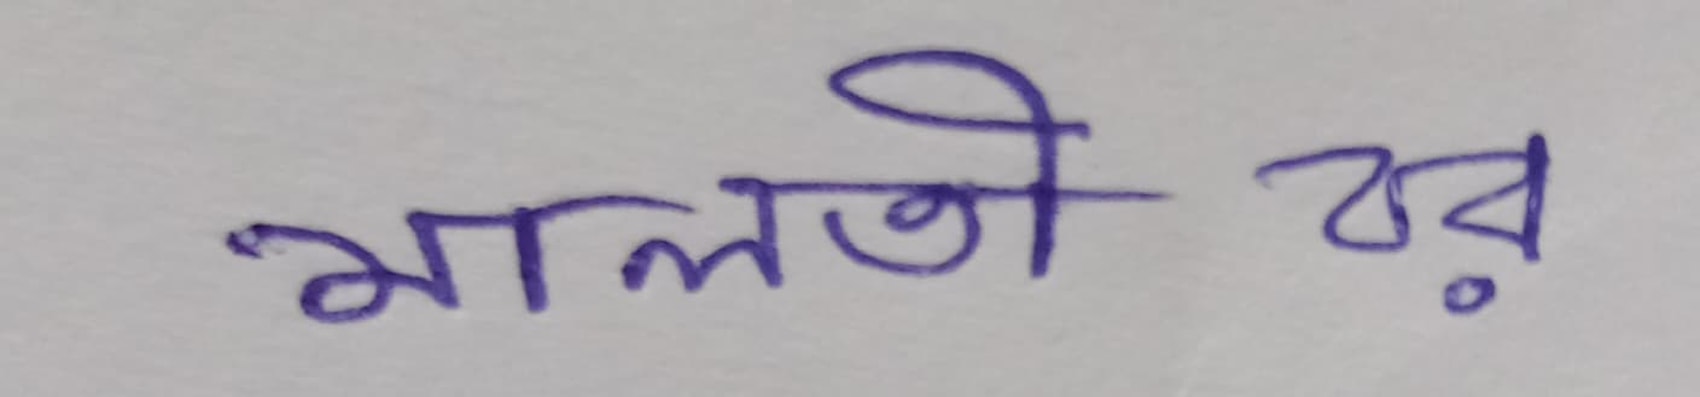 মালতী চর